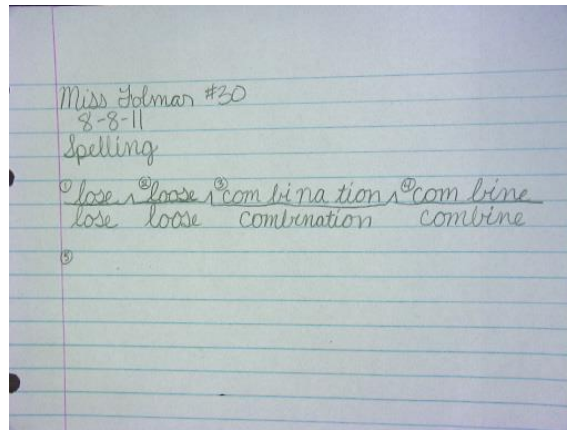 Miss Folmar #30
8-8-11
Spelling
① lose ② loose ③ com bi na tion ④ com bine
lose loose combination combine
⑤